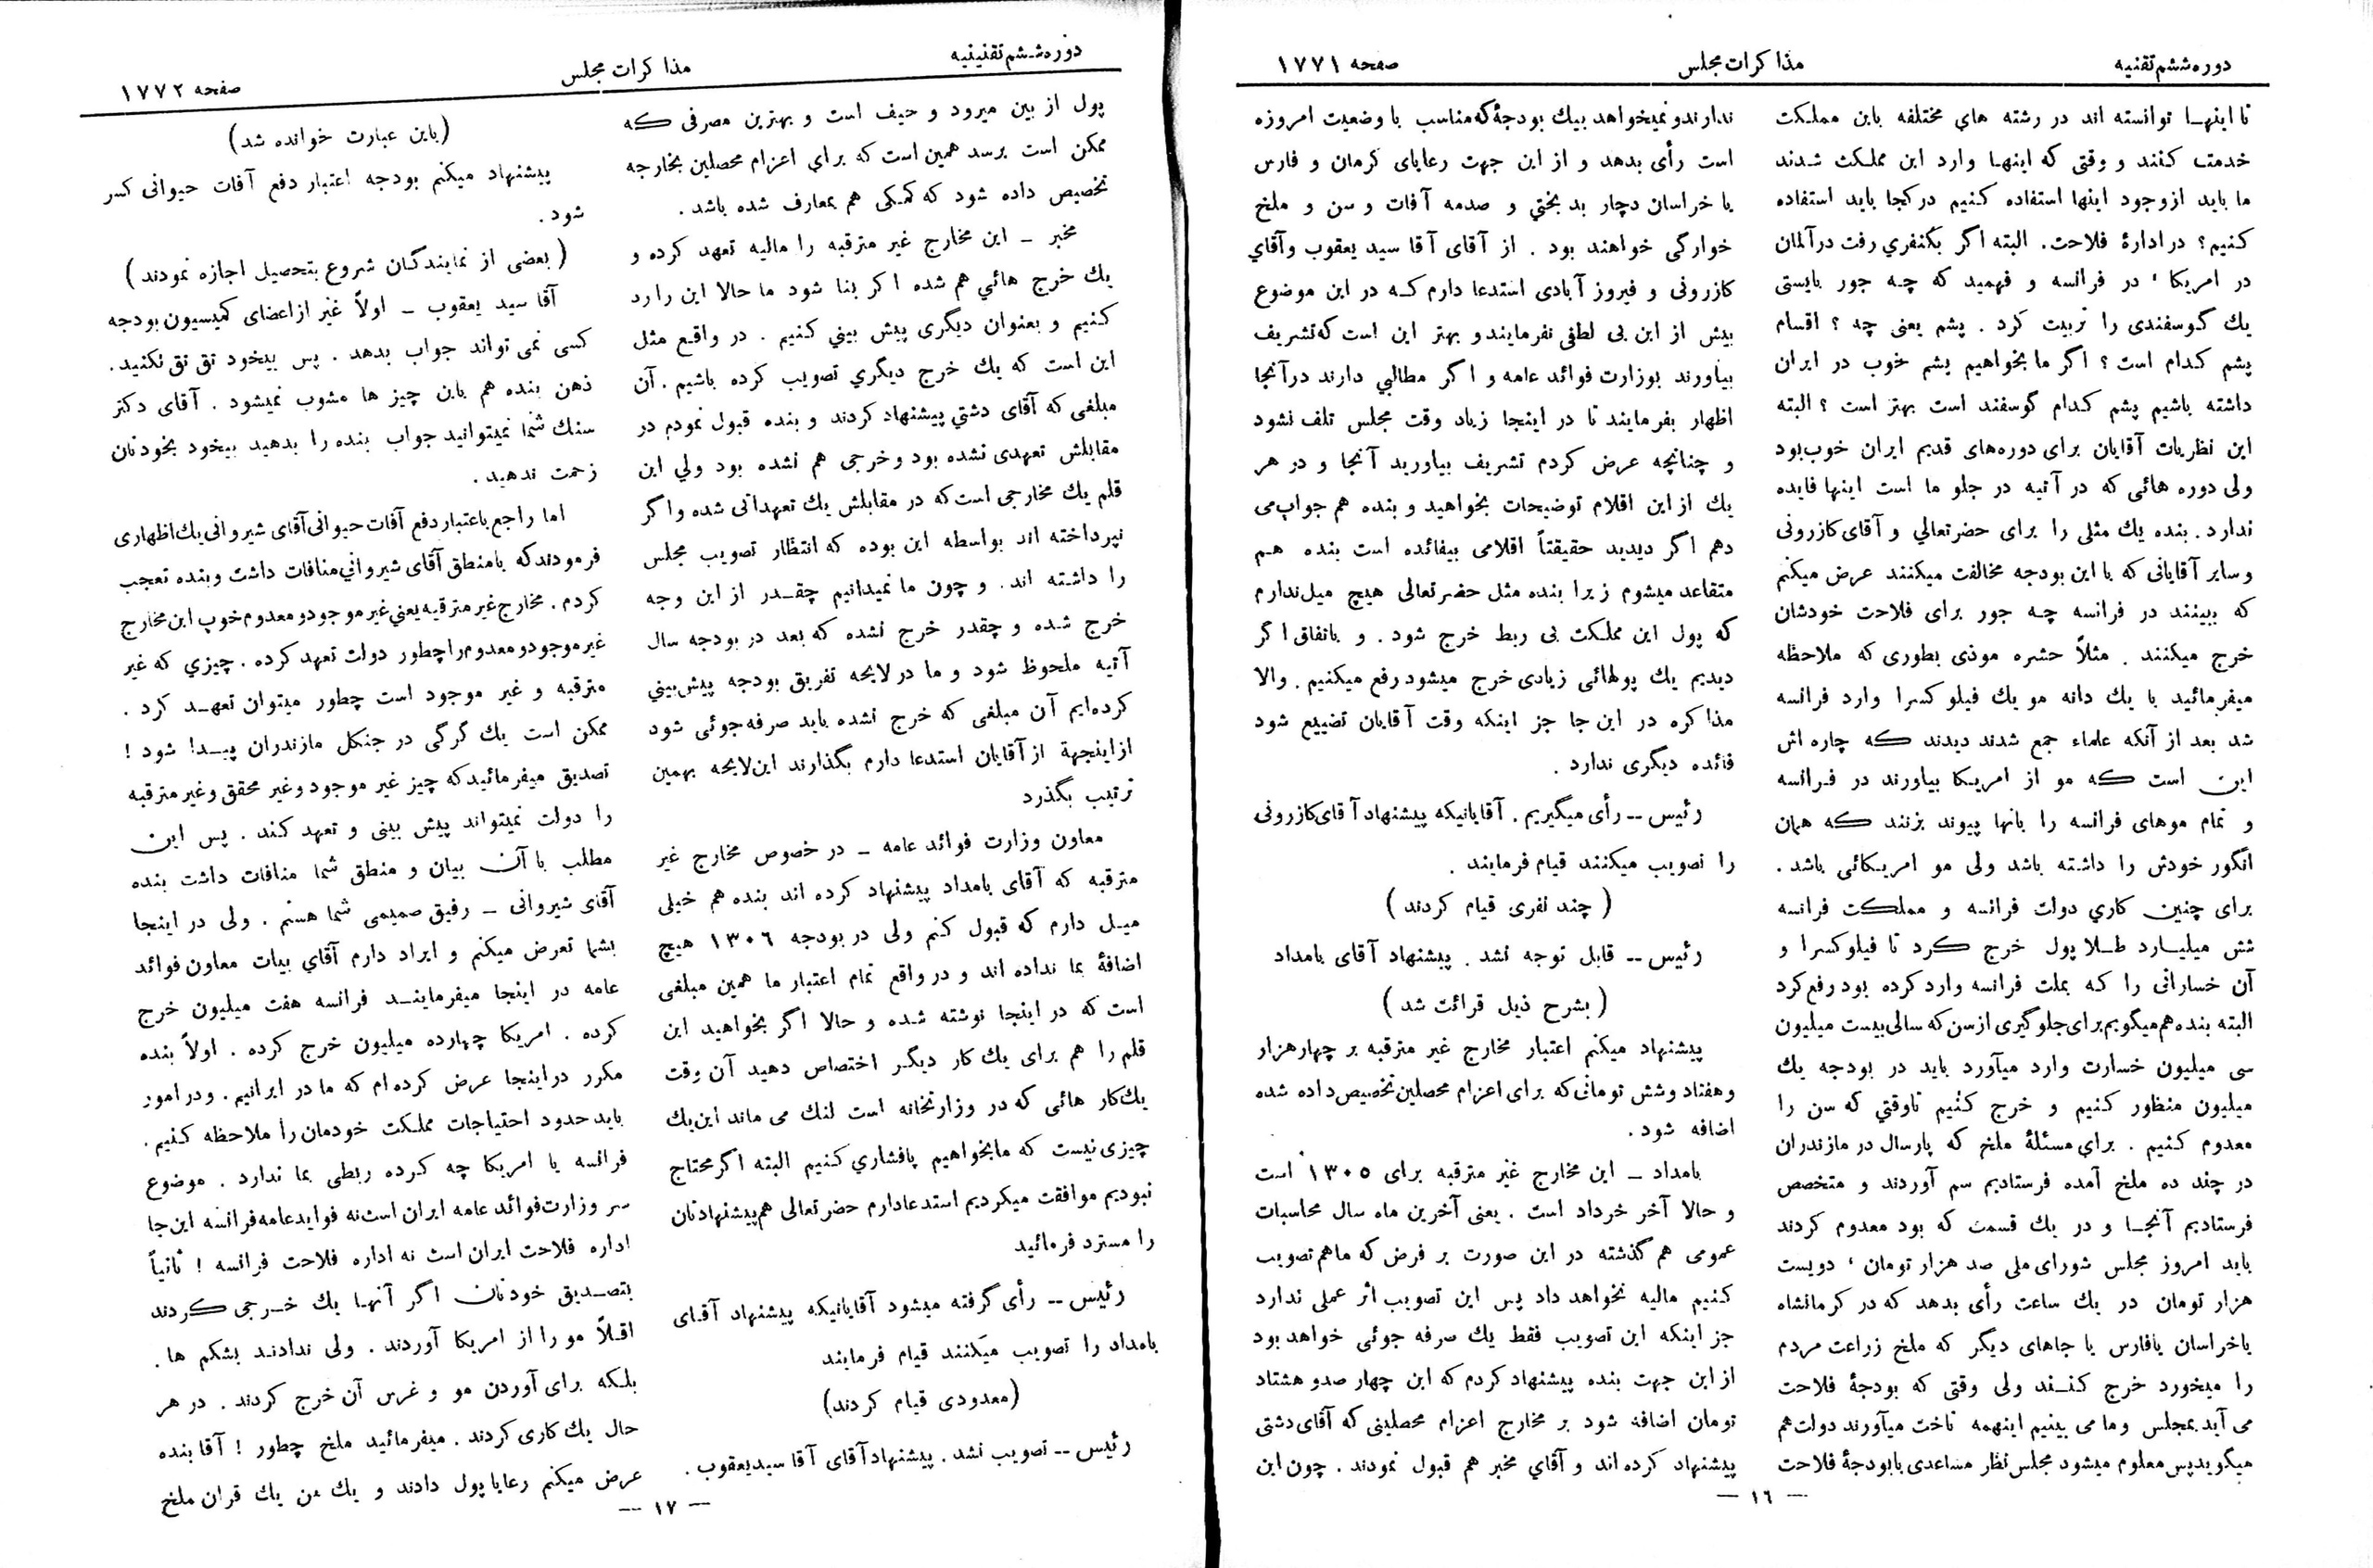 دوره ششم تقنیه
مذاکرات مجلس
صفحه ۱۷۷۱
تا اینهـا توانسته اند در رشته های مختلفه باین مملکت
خدمت کنند و وقتی که اینهـا وارد این مملکت شدند
ما باید ازوجود اینها استفاده کنیم درکجا باید استفاده
کنیم؟ در ادارۀ فلاحت. البته اگر یکنفری رفت درآلمان
در امریکا ، در فرانسه و فهمید که چه جور بایستی
یك گوسفندی را تربیت کرد . پشم یعنی چه ؟ اقسام
پشم کدام است ؟ اگر ما بخواهیم پشم خوب در ایران
داشته باشیم پشم کدام گوسفند است بهتر است ؟ البته
این نظریات آقایان برای دوره‌های قدیم ایران خوب بود
ولی دوره هائی که در آتیه در جلو ما است اینها فایده
ندارد . بنده یك مثلی را برای حضرتعالی و آقای کازرونی
وسایر آقایانی که با این بودجه مخالفت میکنند عرض میکنم
که ببینند در فرانسه چه جور برای فلاحت خودشان
خرج میکنند . مثلاً حشره موذی بطوری که ملاحظه
میفرمائید با یك دانه مو یك فیلو کسرا وارد فرانسه
شد بعد از آنکه علماء جمع شدند دیدند که چاره اش
این است که مو از امریکا بیاورند در فرانسه
و تمام موهای فرانسه را بانها پیوند بزنند که همان
انگور خودش را داشته باشد ولی مو امریکائی باشد .
برای چنین کاری دولت فرانسه و مملکت فرانسه
شش میلیارد طلا پول خرج کرد تا فیلوکسرا و
آن خسارانی را که بملت فرانسه وارد کرده بود رفع کرد
البته بنده هم میگویم برای جلوگیری ازسن که سالی بیست میلیون
سی میلیون خسارت وارد میآورد باید در بودجه یك
میلیون منظور کنیم و خرج کنیم تاوقتی که سن را
معدوم کنیم . برای مسئلۀ ملخ که پارسال در مازندران
در چند ده ملخ آمده فرستادیم سم آوردند و متخصص
فرستادیم آنجـا و در یك قسمت که بود معدوم کردند
باید امروز مجلس شورای ملی صد هزار تومان ، دویست
هزار تومان در یك ساعت رأی بدهد که در کرمانشاه
یاخراسان یافارس یا جاهای دیگر که ملخ زراعت مردم
را میخورد خرج کنند ولی وقتی که بودجۀ فلاحت
می آید بمجلس وما می بینیم اینهمه تاخت میآورند دولت هم
میگوید پس معلوم میشود مجلس نظر مساعدی بابودجۀ فلاحت
ندارند و نمیخواهد بیك بودجۀ که مناسب با وضعیت امروزه
است رأی بدهد و از این جهت رعایای کرمان و فارس
یا خراسان دچار بدبختی و صدمه آفات و سن و ملخ
خوارگی خواهند بود . از آقای آقا سید یعقوب و آقای
کازرونی و فیروز آبادی استدعا دارم که در این موضوع
بیش از این بی لطفی نفرمایند و بهتر این است که تشریف
بیاورند بوزارت فوائد عامه و اگر مطالبی دارند درآنجا
اظهار بفرمایند تا در اینجا زیاد وقت مجلس تلف نشود
و چنانچه عرض کردم تشریف بیاورید آنجا و در هر
یك از این اقلام توضیحات بخواهید و بنده هم جواب می
دهم اگر دیدید حقیقتاً اقلامی بیفائده است بنده هم
متقاعد میشوم زیرا بنده مثل حضرتعالی هیچ میل ندارم
که پول این مملکت بی ربط خرج شود . و باتفاق اگر
دیدیم یك پولهائی زیادی خرج میشود رفع میکنیم . والا
مذاکره در این جا جز اینکه وقت آقایان تضییع شود
فائده دیگری ندارد .
رئیس -- رأی میگیریم . آقایانیکه پیشنهاد آقای کازرونی
را تصویب میکنند قیام فرمایند .
( چند نفری قیام کردند )
رئیس -- قابل توجه نشد . پیشنهاد آقای بامداد
( بشرح ذیل قرائت شد )
پیشنهاد میکنم اعتبار مخارج غیر مترقبه بر چهارهزار
وهفتاد وشش تومانی که برای اعزام محصلین تخصیص داده شده
اضافه شود .
بامداد - این مخارج غیر مترقبه برای ۱۳۰۵ است
و حالا آخر خرداد است . یعنی آخرین ماه سال محاسبات
عمومی هم گذشته در این صورت بر فرض که ماهم تصویب
کنیم مالیه نخواهد داد پس این تصویب اثر عملی ندارد
جز اینکه این تصویب فقط یك سرفه جوئی خواهد بود
از این جهت بنده پیشنهاد کردم که این چهار صدو هشتاد
تومان اضافه شود بر مخارج اعزام محصلینی که آقای دشتی
پیشنهاد کرده اند و آقای مخبر هم قبول نمودند . چون این
— ۱٦ —
دوره ششم تقنینیه
مذاکرات مجلس
صفحه ۱۷۷۲
پول از بین میرود و حیف است و بهترین مصرفی که
ممکن است برسد همین است که برای اعزام محصلین بخارجه
تخصیص داده شود که کمکی هم بمعارف شده باشد .
مخبر - این مخارج غیر مترقبه را مالیه تعهد کرده و
یك خرج هائی هم شده اگر بنا شود ما حالا این را رد
کنیم و بعنوان دیگری پیش بینی کنیم . در واقع مثل
این است که یك خرج دیگری تصویب کرده باشیم . آن
مبلغی که آقای دشتی پیشنهاد کردند و بنده قبول نمودم در
مقابلش تعهدی نشده بود و خرجی هم نشده بود ولی این
قلم یك مخارجی است که در مقابلش یك تعهداتی شده و اگر
نپرداخته اند بواسطه این بوده که انتظار تصویب مجلس
را داشته اند . و چون ما نمیدانیم چقدر از این وجه
خرج شده و چقدر خرج نشده که بعد در بودجه سال
آتیه ملحوظ شود و ما در لایحه تفریق بودجه پیش‌بینی
کرده‌ایم آن مبلغی که خرج نشده باید صرفه جوئی شود
ازاینجهة از آقایان استدعا دارم بگذارند این لایحه بهمین
ترتیب بگذرد
معاون وزارت فوائد عامه - در خصوص مخارج غیر
مترقبه که آقای بامداد پیشنهاد کرده اند بنده هم خیلی
میل دارم که قبول کنم ولی در بودجه ۱۳۰٦ هیچ
اضافۀ بما نداده اند و در واقع تمام اعتبار ما همین مبلغی
است که در اینجا نوشته شده و حالا اگر بخواهید این
قلم را هم برای یك کار دیگر اختصاص دهید آن وقت
یك کار هائی که در وزارتخانه است لنگ می ماند این یك
چیزی نیست که مابخواهیم پافشاری کنیم البته اگر محتاج
نبودیم موافقت میکردیم استدعادارم حضرتعالی هم پیشنهادتان
را مسترد فرمائید
رئیس -- رأی گرفته میشود آقایانیکه پیشنهاد آقای
بامداد را تصویب میکنند قیام فرمایند
(معدودی قیام کردند)
رئیس -- تصویب نشد . پیشنهاد آقای آقا سید یعقوب .
(باین عبارت خوانده شد)
پیشنهاد میکنم بودجه اعتبار دفع آفات حیوانی کسر
شود .
( بعضی از نمایندگان شروع بتحصیل اجازه نمودند )
آقا سید یعقوب - اولاً غیر از اعضای کمیسیون بودجه
کسی نمی تواند جواب بدهد . پس بیخود تق تق نکنید .
ذهن بنده هم باین چیز ها مشوب نمیشود . آقای دکتر
سنك شما نمیتوانید جواب بنده را بدهید بیخود بخودتان
زحمت ندهید .
اما راجع باعتبار دفع آفات حیوانی آقای شیروانی یك اظهاری
فرمودند که بامنطق آقای شیروانی منافات داشت و بنده تعجب
کردم . مخارج غیر مترقبه یعنی غیر موجود و معدوم خوب این مخارج
غیر موجود و معدوم را چطور دولت تعهد کرده . چیزی که غیر
مترقبه و غیر موجود است چطور میتوان تعهد کرد .
ممکن است یك گرگی در جنگل مازندران پیدا شود !
تصدیق میفرمائید که چیز غیر موجود و غیر محقق و غیر مترقبه
را دولت نمیتواند پیش بینی و تعهد کند . پس این
مطلب با آن بیان و منطق شما منافات داشت بنده
آقای شیروانی - رفیق صمیمی شما هستم . ولی در اینجا
بشما تعرض میکنم و ایراد دارم آقای بیات معاون فوائد
عامه در اینجا میفرمایند فرانسه هفت میلیون خرج
کرده . امریکا چهارده میلیون خرج کرده . اولاً بنده
مکرر دراینجا عرض کرده‌ام که ما در ایرانیم . ودر امور
باید حدود احتیاجات مملکت خودمان را ملاحظه کنیم .
فرانسه یا امریکا چه کرده ربطی بما ندارد . موضوع
سر وزارت فوائد عامه ایران است نه فواید عامه فرانسه این جا
اداره فلاحت ایران است نه اداره فلاحت فرانسه ! ثانیاً
بتصدیق خودتان اگر آنها یك خرجی کردند
اقلاً مو را از امریکا آوردند . ولی ندادند بشکم ها .
بلکه برای آوردن مو و غرس آن خرج کردند . در هر
حال یك کاری کردند . میفرمائید ملخ چطور ! آقا بنده
عرض میکنم رعایا پول دادند و یك من یك قران ملخ
— ۱۷ —